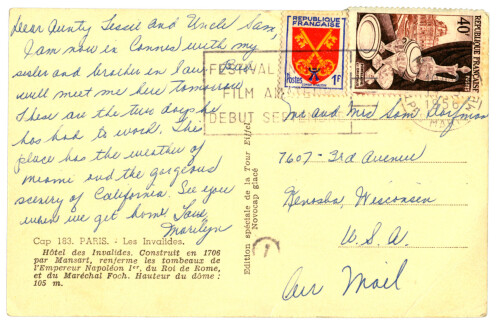 Dear Aunty Tessie and Uncle Sam,
I am now in Cannes with my
sister and brother in law. Ben
will meet me here tomorrow
These are the two days he
has had to work. This
place has the weather of
Miami and the gorgeous
scenery of California. See you
when we get home. Love,
Marilyn
Cap 183. PARIS. - Les Invalides.
Hôtel des Invalides. Construit en 1706
par Mansart, renferme les tombeaux de
l'Empereur Napoléon Ier, du Roi de Rome,
et du Maréchal Foch. Hauteur du dôme :
105 m.
Edition spéciale de la Tour Eiffel
Novocap glacé
REPUBLIQUE
FRANÇAISE
Postes 1F
40F
REPUBLIQUE FRANÇAISE
FESTIVAL
FILM
DEBUT
1956
Mr and Mrs Sam
7607-3rd Avenue
Kenosha, Wisconsin
U.S.A.
Air Mail